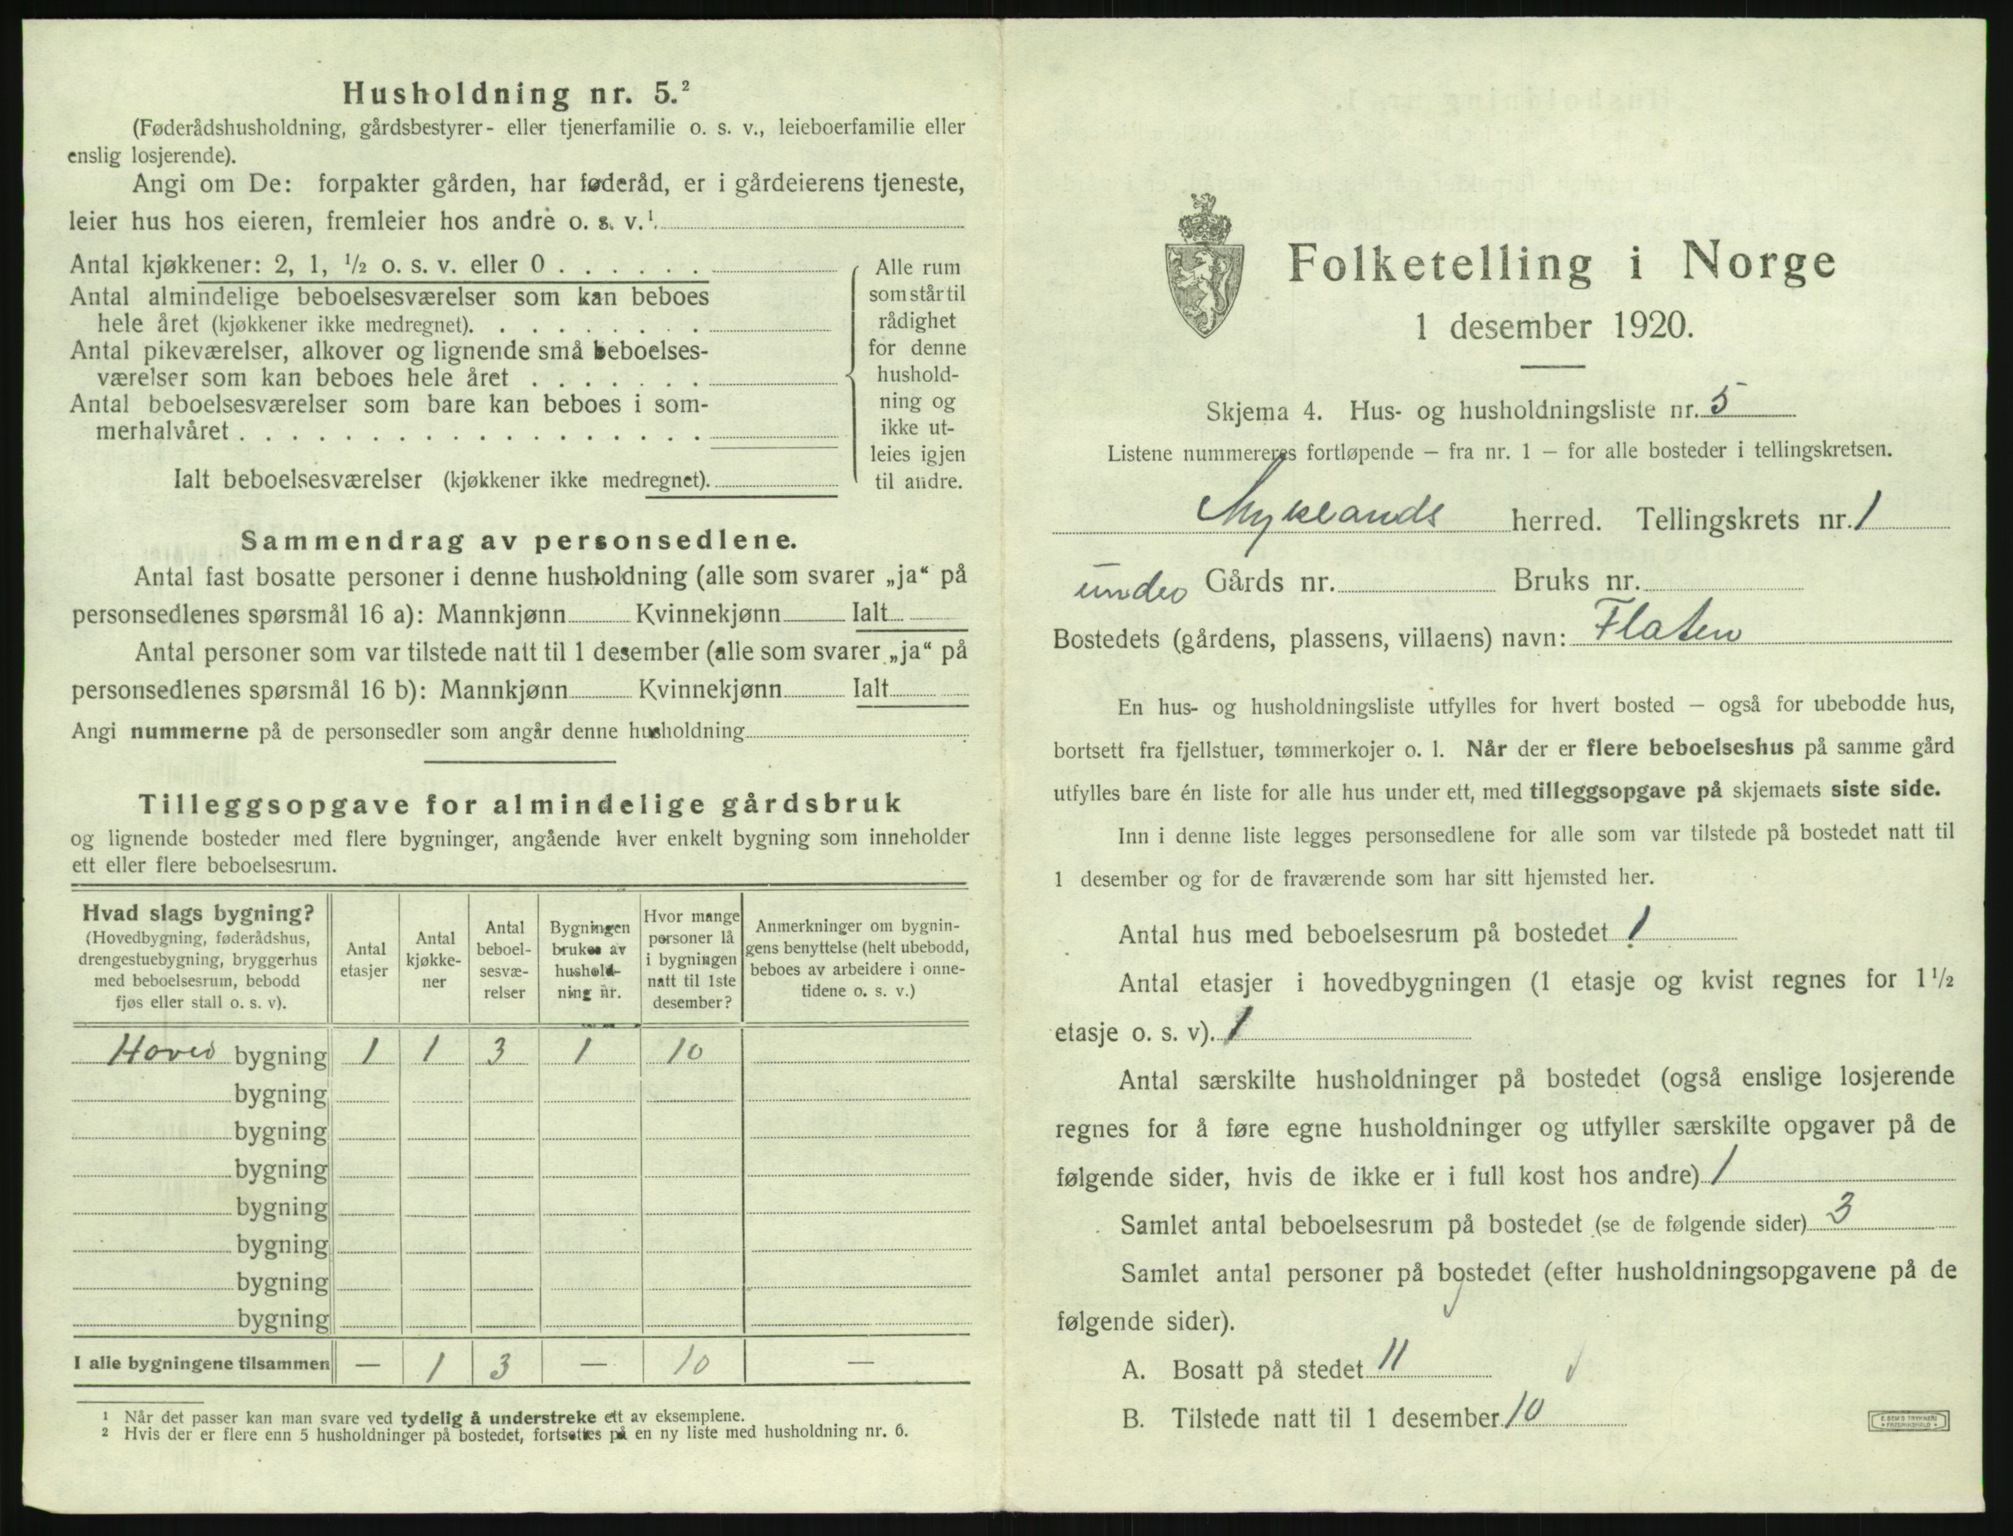 Husholdning nr. 5.²
(Føderådshusholdning, gårdsbestyrer- eller tjenerfamilie o. s. v., leieboerfamilie eller
enslig losjerende).
Angi om De: forpakter gården, har føderåd, er i gårdeierens tjeneste,
leier hus hos eieren, fremleier hos andre o. s. v.¹
Antal kjøkkener: 2, 1, ½ o. s. v. eller 0 . . . . . .
Antal almindelige beboelsesværelser som kan beboes
hele året (kjøkkener ikke medregnet). . . . . . . . .
Antal pikeværelser, alkover og lignende små beboelses-
værelser som kan beboes hele året . . . . . . .
Antal beboelsesværelser som bare kan beboes i som-
merhalvåret . . . . . . . . . . . . . . . . . .
Ialt beboelsesværelser (kjøkkener ikke medregnet).
Alle rum
som står til
rådighet
for denne
hushold-
ning og
ikke ut-
leies igjen
til andre.
Sammendrag av personsedlene.
Antal fast bosatte personer i denne husholdning (alle som svarer „ja“ på
personsedlenes spørsmål 16 a): Mannkjønn Kvinnekjønn Ialt
Antal personer som var tilstede natt til 1 desember (alle som svarer „ja“ på
personsedlenes spørsmål 16 b): Mannkjønn Kvinnekjønn Ialt
Angi nummerne på de personsedler som angår denne husholdning
Tilleggsopgave for almindelige gårdsbruk
og lignende bosteder med flere bygninger, angående hver enkelt bygning som inneholder
ett eller flere beboelsesrum.
Hvad slags bygning?
(Hovedbygning, føderådshus,
drengestuebygning, bryggerhus
med beboelsesrum, bebodd
fjøs eller stall o. s. v).
Antal
etasjer
Antal
kjøkke-
ner
Antal
beboel-
sesvæ-
relser
Bygningen
brukes av
hushold-
ning nr.
Hvor mange
personer lå
i bygningen
natt til 1ste
desember?
Anmerkninger om bygnin-
gens benyttelse (helt ubebodd,
beboes av arbeidere i onne-
tidene o. s. v.)
Hoved bygning 1 1 3 1 10
bygning
bygning
bygning
bygning
bygning
bygning
bygning
I alle bygningene tilsammen — 1 3 — 10 —
¹ Når det passer kan man svare ved tydelig å understreke ett av eksemplene.
² Hvis der er flere enn 5 husholdninger på bostedet, fortsettes på en ny liste med husholdning nr. 6.
Folketelling i Norge
1 desember 1920.
Skjema 4. Hus- og husholdningsliste nr. 5
Listene nummereres fortløpende – fra nr. 1 – for alle bosteder i tellingskretsen.
Myklands herred. Tellingskrets nr. 1
under Gårds nr. Bruks nr.
Bostedets (gårdens, plassens, villaens) navn: Flaten
En hus- og husholdningsliste utfylles for hvert bosted – også for ubebodde hus,
bortsett fra fjellstuer, tømmerkojer o. l. Når der er flere beboelseshus på samme gård
utfylles bare én liste for alle hus under ett, med tilleggsopgave på skjemaets siste side.
Inn i denne liste legges personsedlene for alle som var tilstede på bostedet natt til
1 desember og for de fraværende som har sitt hjemsted her.
Antal hus med beboelsesrum på bostedet 1
Antal etasjer i hovedbygningen (1 etasje og kvist regnes for 1½
etasje o. s. v). 1
Antal særskilte husholdninger på bostedet (også enslige losjerende
regnes for å føre egne husholdninger og utfyller særskilte opgaver på de
følgende sider, hvis de ikke er i full kost hos andre) 1
Samlet antal beboelsesrum på bostedet (se de følgende sider) 3
Samlet antal personer på bostedet (efter husholdningsopgavene på de
følgende sider).
A. Bosatt på stedet 11
B. Tilstede natt til 1 desember 10